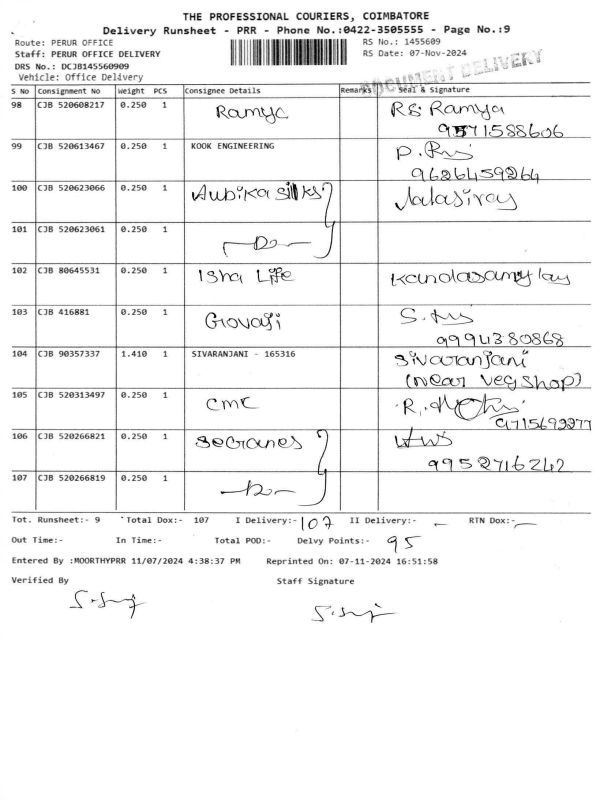 THE PROFESSIONAL COURIERS, COIMBATORE
Delivery Runsheet - PRR - Phone No.:0422-3505555 - Page No.:9
Route: PERUR OFFICE RS No.: 1455609
Staff: PERUR OFFICE DELIVERY RS Date: 07-Nov-2024
DRS No.: DCJB145560909
Vehicle: Office Delivery
DOCUMENT DELIVERY
S No Consignment No Weight PCS Consignee Details Remarks Seal & Signature
98 CJB 520608217 0.250 1 Ramya RS Ramya
9571588606
99 CJB 520613467 0.250 1 KOOK ENGINEERING
9626459264
100 CJB 520623066 0.250 1 Silks
101 CJB 520623061 0.250 1 —Do—
102 CJB 80645531 0.250 1 Isha Life
103 CJB 416881 0.250 1
9994380868
104 CJB 90357337 1.410 1 SIVARANJANI - 165316 Sivaranjani
(near veg shop)
105 CJB 520313497 0.250 1
106 CJB 520266821 0.250 1
9952716242
107 CJB 520266819 0.250 1 —Do—
Tot. Runsheet:- 9 Total Dox:- 107 I Delivery:- 107 II Delivery:- – RTN Dox:- –
Out Time:- In Time:- Total POD:- Delvy Points:- 95
Entered By :MOORTHYPRR 11/07/2024 4:38:37 PM Reprinted On: 07-11-2024 16:51:58
Verified By Staff Signature